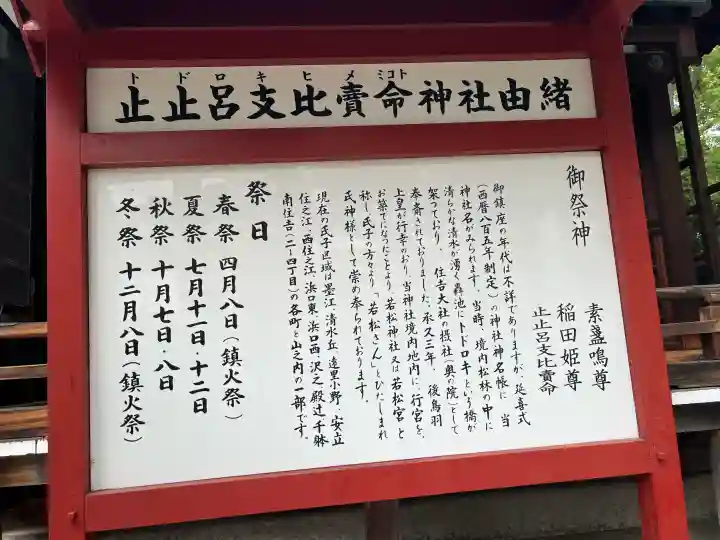 止止呂支比賣命神社由緒
トドロキヒメミコト
御祭神
素盞鳴尊
稲田姫尊
止止呂支比賣命
御鎮座の年代は不詳でありますが、延喜式
(西暦八百五年制定)の神社神名帳に、当
神社名がみられます。当時、境内松林の中に
清らかな清水が湧く轟池にトドロキという橋が
架っており、住吉大社の摂社(奥の院)として
奉斎されておりました。承久三年、後鳥羽
上皇が行幸のおり、当神社境内地内に、行宮を、
お築てになったことより、若松神社又は若松宮と
称し、氏子の方々より、若松さん」としたしまれ
氏神様として崇め奉られております。
現在の氏子区域は墨江、清水丘、遠里小野、安立
住之江、西住之江、浜口東、浜口西、沢之町、殿辻、千躰
南住吉(二〜四丁目)の各町と山之内の一部です。
祭日
春祭 四月八日(鎮火祭)
夏祭 七月十一日・十二日
秋祭 十月七日・八日
冬祭 十二月八日(鎮火祭)